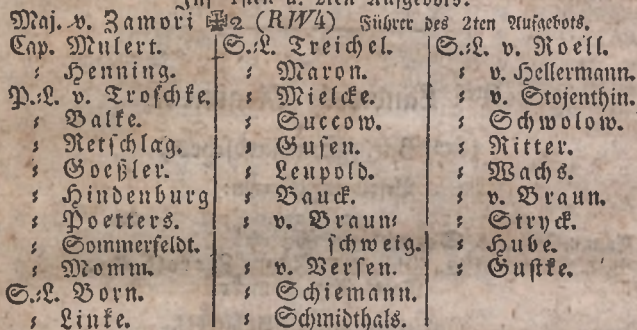 Inf. 1sten u. 2ten Aufgebots.
Maj. v. Zamori ✠2 (RW4) Führer des 2ten Aufgebots.
Cap. Mulert.
⸗ Henning.
P.⸗L. v. Troschke.
⸗ Balke.
⸗ Retschlag.
⸗ Goeßler.
⸗ Hindenburg
⸗ Poetters.
⸗ Sommerfeldt.
⸗ Momm.
S.⸗L. Born.
⸗ Linke.
S.⸗L. Treichel.
⸗ Maron.
⸗ Mielcke.
⸗ Succow.
⸗ Gusen.
⸗ Leupold.
⸗ Bauck.
⸗ v. Braun⸗
schweig.
⸗ v. Versen.
⸗ Schiemann.
⸗ Schmidthals.
S.⸗L. v. Roell.
⸗ v. Hellermann.
⸗ v. Stojenthin.
⸗ Schwolow.
⸗ Ritter.
⸗ Wachs.
⸗ v. Braun.
⸗ Stryck.
⸗ Hube.
⸗ Gustke.